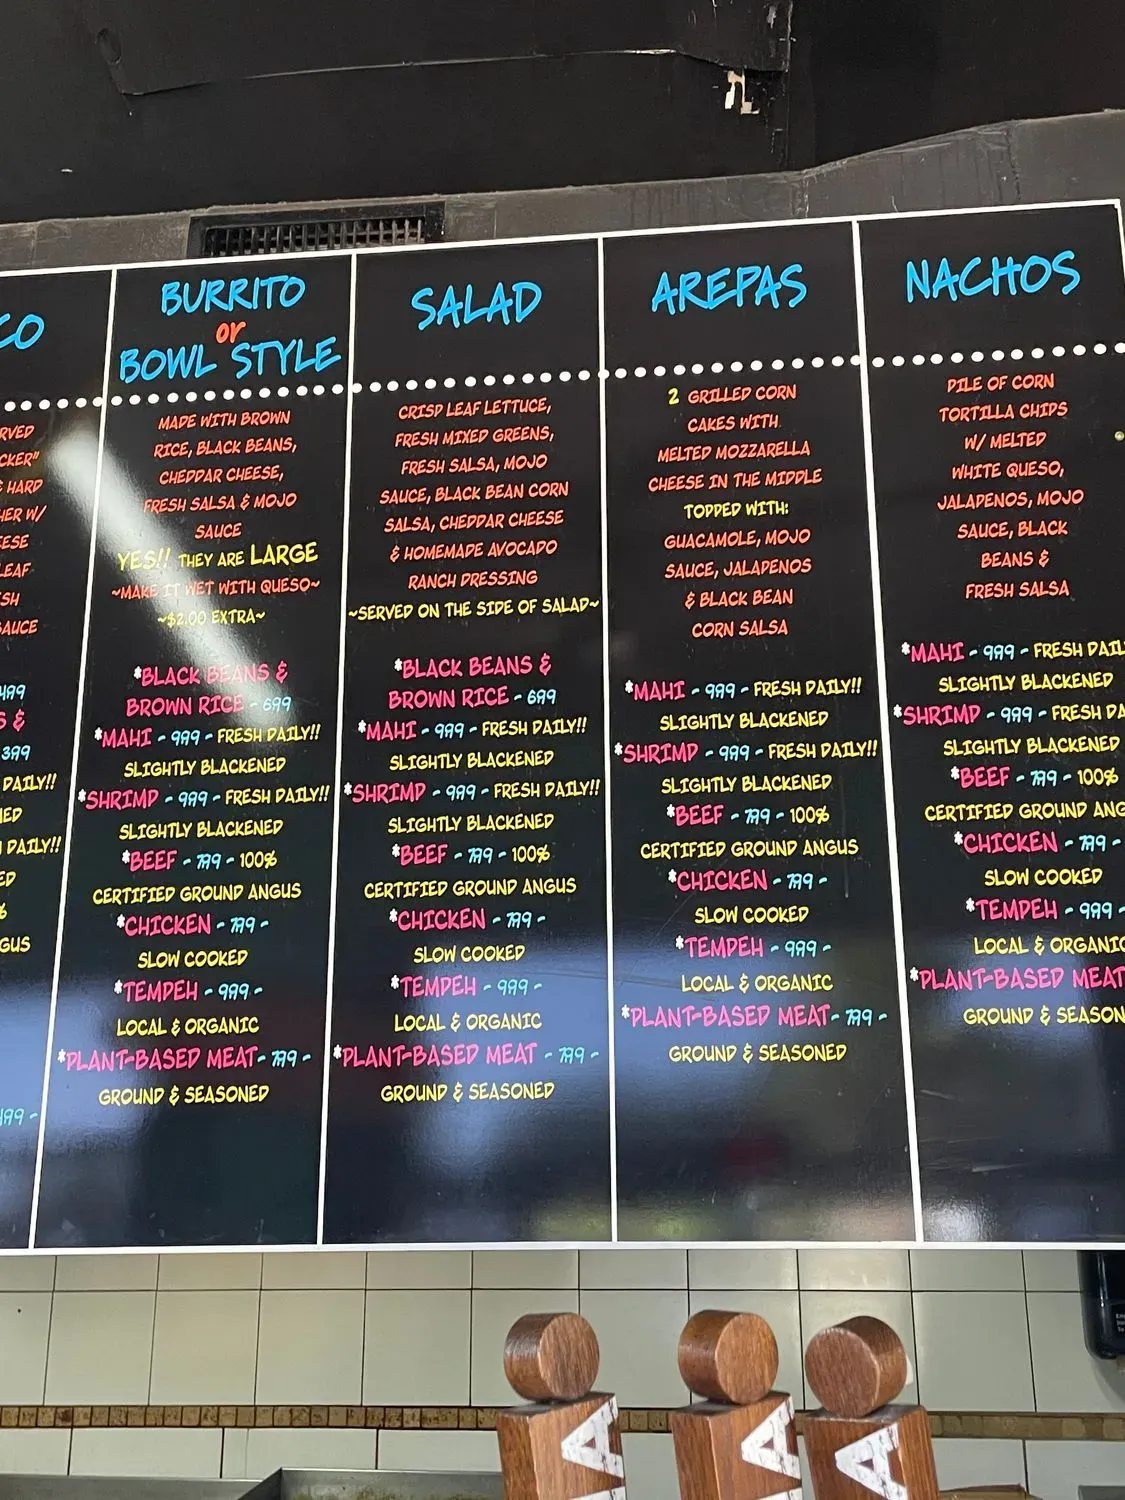 CO
RVED
CKER"
& HARD
HER W/
ESE
LEAF
SH
SAUCE
499
S &
399
DAILY!!
ED
DAILY!!
ED
%
GUS
499 -
BURRITO
or
BOWL STYLE
MADE WITH BROWN
RICE, BLACK BEANS,
CHEDDAR CHEESE,
FRESH SALSA & MOJO
SAUCE
YES!! THEY ARE LARGE
~MAKE IT WET WITH QUESO~
~$2.00 EXTRA~
*BLACK BEANS &
BROWN RICE - 699
*MAHI - 999 - FRESH DAILY!!
SLIGHTLY BLACKENED
*SHRIMP - 999 - FRESH DAILY!!
SLIGHTLY BLACKENED
*BEEF - 799 - 100%
CERTIFIED GROUND ANGUS
*CHICKEN - 799 -
SLOW COOKED
*TEMPEH - 999 -
LOCAL & ORGANIC
*PLANT-BASED MEAT- 799 -
GROUND & SEASONED
SALAD
CRISP LEAF LETTUCE,
FRESH MIXED GREENS,
FRESH SALSA, MOJO
SAUCE, BLACK BEAN CORN
SALSA, CHEDDAR CHEESE
& HOMEMADE AVOCADO
RANCH DRESSING
~SERVED ON THE SIDE OF SALAD~
*BLACK BEANS &
BROWN RICE - 699
*MAHI - 999 - FRESH DAILY!!
SLIGHTLY BLACKENED
*SHRIMP - 999 - FRESH DAILY!!
SLIGHTLY BLACKENED
*BEEF - 799 - 100%
CERTIFIED GROUND ANGUS
*CHICKEN - 799 -
SLOW COOKED
*TEMPEH - 999 -
LOCAL & ORGANIC
*PLANT-BASED MEAT - 799 -
GROUND & SEASONED
AREPAS
2 GRILLED CORN
CAKES WITH
MELTED MOZZARELLA
CHEESE IN THE MIDDLE
TOPPED WITH:
GUACAMOLE, MOJO
SAUCE, JALAPENOS
& BLACK BEAN
CORN SALSA
*MAHI - 999 - FRESH DAILY!!
SLIGHTLY BLACKENED
*SHRIMP - 999 - FRESH DAILY!!
SLIGHTLY BLACKENED
*BEEF - 799 - 100%
CERTIFIED GROUND ANGUS
*CHICKEN - 799 -
SLOW COOKED
*TEMPEH - 999 -
LOCAL & ORGANIC
*PLANT-BASED MEAT- 799 -
GROUND & SEASONED
NACHOS
PILE OF CORN
TORTILLA CHIPS
W/ MELTED
WHITE QUESO,
JALAPENOS, MOJO
SAUCE, BLACK
BEANS &
FRESH SALSA
*MAHI - 999 - FRESH DAIL
SLIGHTLY BLACKENED
*SHRIMP - 999 - FRESH DA
SLIGHTLY BLACKENED
*BEEF - 799 - 100%
CERTIFIED GROUND ANG
*CHICKEN - 799 -
SLOW COOKED
*TEMPEH - 999 -
LOCAL & ORGANIC
*PLANT-BASED MEAT
GROUND & SEASON
A
A
A